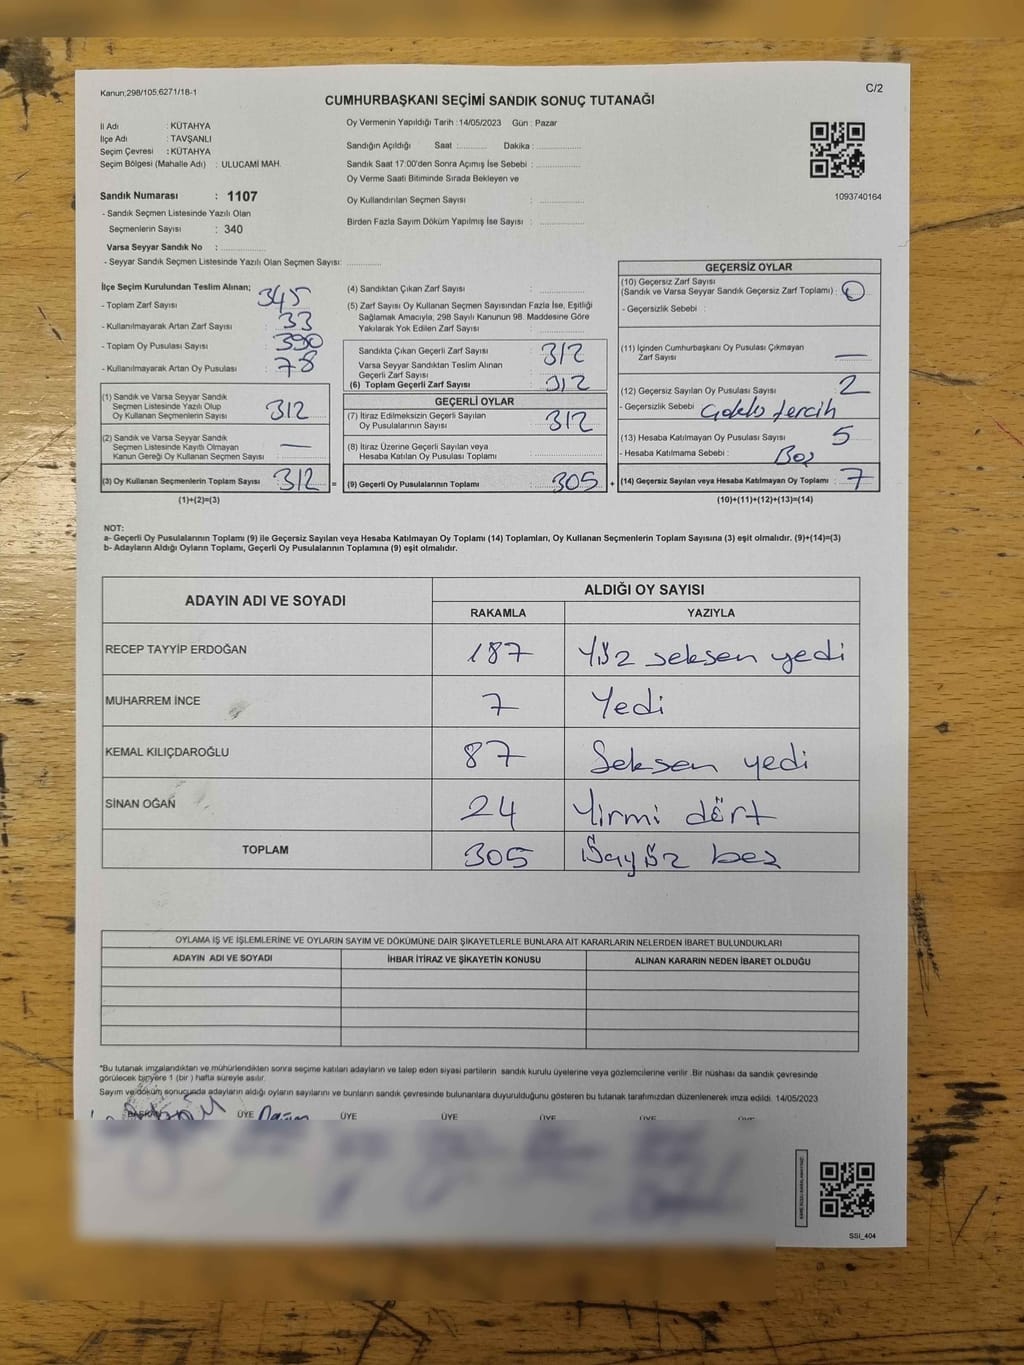 Kanun;298/105;6271/18-1
C/2
CUMHURBAŞKANI SEÇİMİ SANDIK SONUÇ TUTANAĞI
İl Adı : KÜTAHYA
İlçe Adı : TAVŞANLI
Seçim Çevresi : KÜTAHYA
Seçim Bölgesi (Mahalle Adı) : ULUCAMİ MAH.
Sandık Numarası : 1107
- Sandık Seçmen Listesinde Yazılı Olan
Seçmenlerin Sayısı : 340
Varsa Seyyar Sandık No : ..............
- Seyyar Sandık Seçmen Listesinde Yazılı Olan Seçmen Sayısı: ............
Oy Vermenin Yapıldığı Tarih :14/05/2023 Gün : Pazar
Sandığın Açıldığı Saat :.......... Dakika :..............
Sandık Saat 17:00'den Sonra Açımış İse Sebebi : ..............
Oy Verme Saati Bitiminde Sırada Bekleyen ve
Oy Kullandırılan Seçmen Sayısı : ..............
Birden Fazla Sayım Döküm Yapılmış İse Sayısı : ..............
1093740164
İlçe Seçim Kurulundan Teslim Alınan;
- Toplam Zarf Sayısı : 345
- Kullanılmayarak Artan Zarf Sayısı : 33
- Toplam Oy Pusulası Sayısı : 390
- Kullanılmayarak Artan Oy Pusulası : 78
(1) Sandık ve Varsa Seyyar Sandık
Seçmen Listesinde Yazılı Olup
Oy Kullanan Seçmenlerin Sayısı : 312
(2) Sandık ve Varsa Seyyar Sandık
Seçmen Listesinde Kayıtlı Olmayan
Kanun Gereği Oy Kullanan Seçmen Sayısı : —
(3) Oy Kullanan Seçmenlerin Toplam Sayısı : 312 =
(1)+(2)=(3)
(4) Sandıktan Çıkan Zarf Sayısı : ..............
(5) Zarf Sayısı Oy Kullanan Seçmen Sayısından Fazla İse, Eşitliği
Sağlamak Amacıyla, 298 Sayılı Kanunun 98. Maddesine Göre
Yakılarak Yok Edilen Zarf Sayısı : ..............
Sandıkta Çıkan Geçerli Zarf Sayısı : 312
Varsa Seyyar Sandıktan Teslim Alınan
Geçerli Zarf Sayısı
(6) Toplam Geçerli Zarf Sayısı : 312
GEÇERLİ OYLAR
(7) İtiraz Edilmeksizin Geçerli Sayılan
Oy Pusulalarının Sayısı : 312
(8) İtiraz Üzerine Geçerli Sayılan veya
Hesaba Katılan Oy Pusulası Toplamı : ..............
(9) Geçerli Oy Pusulalarının Toplamı : 305 +
GEÇERSİZ OYLAR
(10) Geçersiz Zarf Sayısı
(Sandık ve Varsa Seyyar Sandık Geçersiz Zarf Toplamı) : 0
- Geçersizlik Sebebi :
(11) İçinden Cumhurbaşkanı Oy Pusulası Çıkmayan
Zarf Sayısı : —
(12) Geçersiz Sayılan Oy Pusulası Sayısı : 2
- Geçersizlik Sebebi : tercih
(13) Hesaba Katılmayan Oy Pusulası Sayısı : 5
- Hesaba Katılmama Sebebi : Boş
(14) Geçersiz Sayılan veya Hesaba Katılmayan Oy Toplamı : 7
(10)+(11)+(12)+(13)=(14)
NOT:
a- Geçerli Oy Pusulalarının Toplamı (9) ile Geçersiz Sayılan veya Hesaba Katılmayan Oy Toplamı (14) Toplamları, Oy Kullanan Seçmenlerin Toplam Sayısına (3) eşit olmalıdır. (9)+(14)=(3)
b- Adayların Aldığı Oyların Toplamı, Geçerli Oy Pusulalarının Toplamına (9) eşit olmalıdır.
ADAYIN ADI VE SOYADI ALDIĞI OY SAYISI
RAKAMLA YAZIYLA
RECEP TAYYİP ERDOĞAN 187 Yüz seksen yedi
MUHARREM İNCE 7 Yedi
KEMAL KILIÇDAROĞLU 87 Seksen yedi
SİNAN OĞAN 24 Yirmi dört
TOPLAM 305 Üçyüz beş
OYLAMA İŞ VE İŞLEMLERİNE VE OYLARIN SAYIM VE DÖKÜMÜNE DAİR ŞİKAYETLERLE BUNLARA AİT KARARLARIN NELERDEN İBARET BULUNDUKLARI
ADAYIN ADI VE SOYADI İHBAR İTİRAZ VE ŞİKAYETİN KONUSU ALINAN KARARIN NEDEN İBARET OLDUĞU
*Bu tutanak imzalandıktan ve mühürlendikten sonra seçime katılan adayların ve talep eden siyasi partilerin sandık kurulu üyelerine veya gözlemcilerine verilir .Bir nüshası da sandık çevresinde
görülecek bir yere 1 (bir ) hafta süreyle asılır.
Sayım ve döküm sonucunda adayların aldığı oyların sayılarını ve bunların sandık çevresinde bulunanlara duyurulduğunu gösteren bu tutanak tarafımızdan düzenlenerek imza edildi. 14/05/2023
BAŞKAN ÜYE ÜYE ÜYE ÜYE ÜYE ÜYE
SSI_404